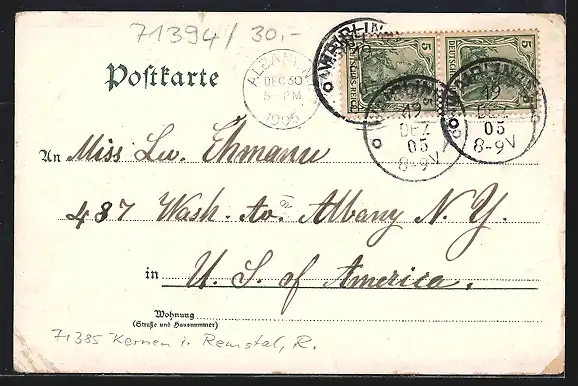 71394/ 30,-
Postkarte
ALBANY, N.
DEC 30
5 - PM
1905
5 5
DEUTSCHES REICH
BERLIN
19
DEZ
05
8-9V
19
DEZ
05
8-9V
An Miss Lu. Ehmann
487 Wash. Av. Albany N. Y.
in U. S. of America.
Wohnung
(Straße und Hausnummer)
71385 Kernen i. Remstal, R.